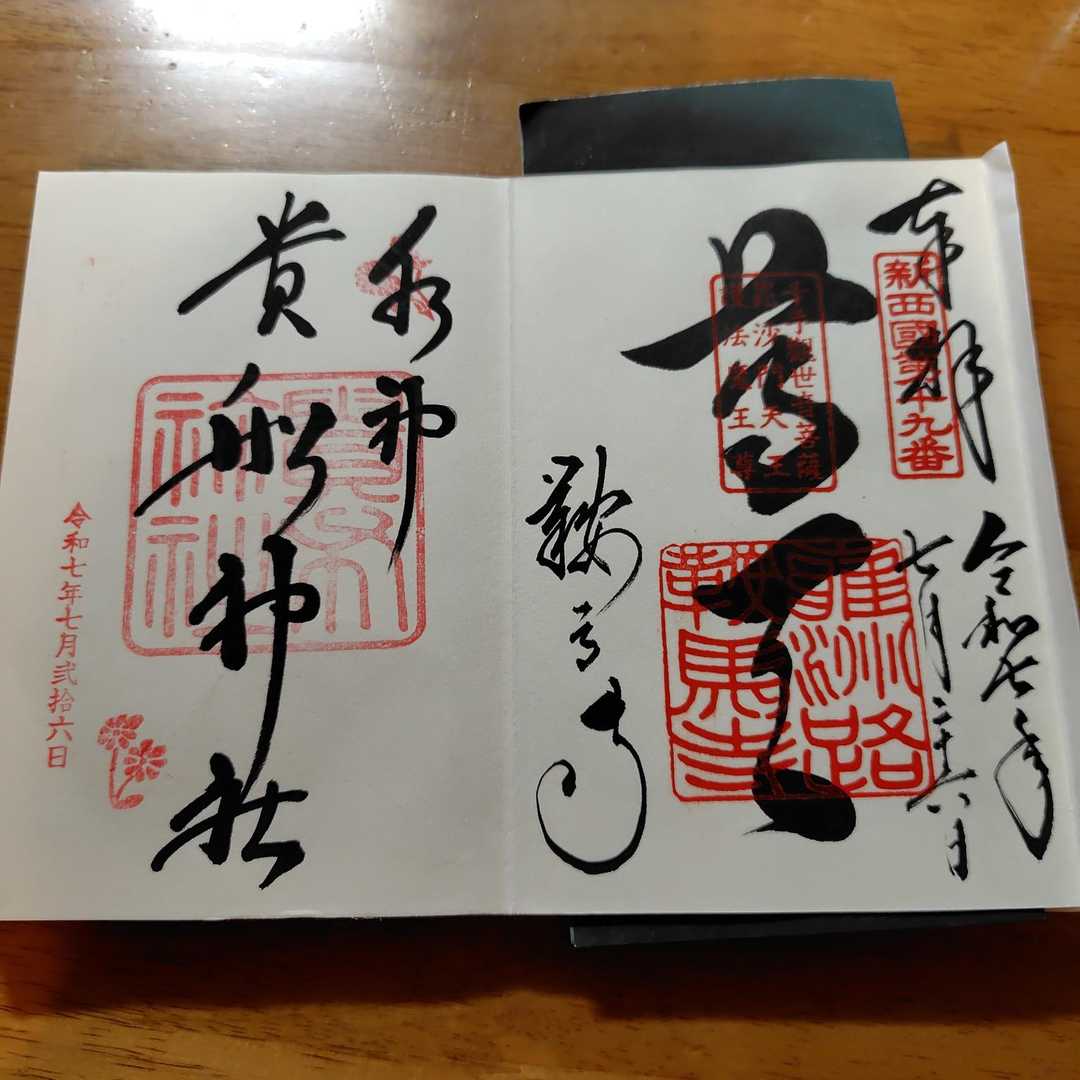 奉拝
新西國第十九番
令和七年
七月二十六日
尊天
千手觀世音菩薩
毘沙門天王
護法魔王尊
雍州路
鞍馬寺
鞍馬寺
水神
貴船神社
令和七年七月弐拾六日